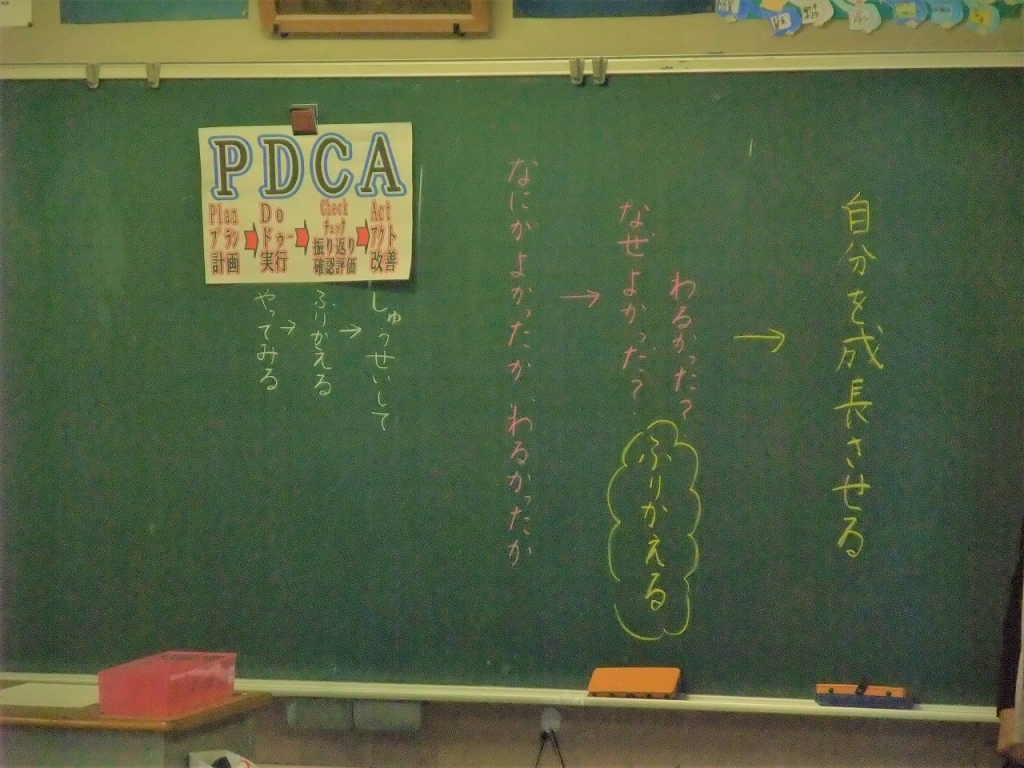 PDCA
Plan
プラン
計画
Do
ドゥー
実行
Check
チェック
振り返り
確認評価
Act
アクト
改善
自分を成長させる
→
わるかった?
なぜよかった?
ふりかえる
→
なにかよかったか、わるかったか
しゅっせいして
→
ふりかえる
→
やってみる